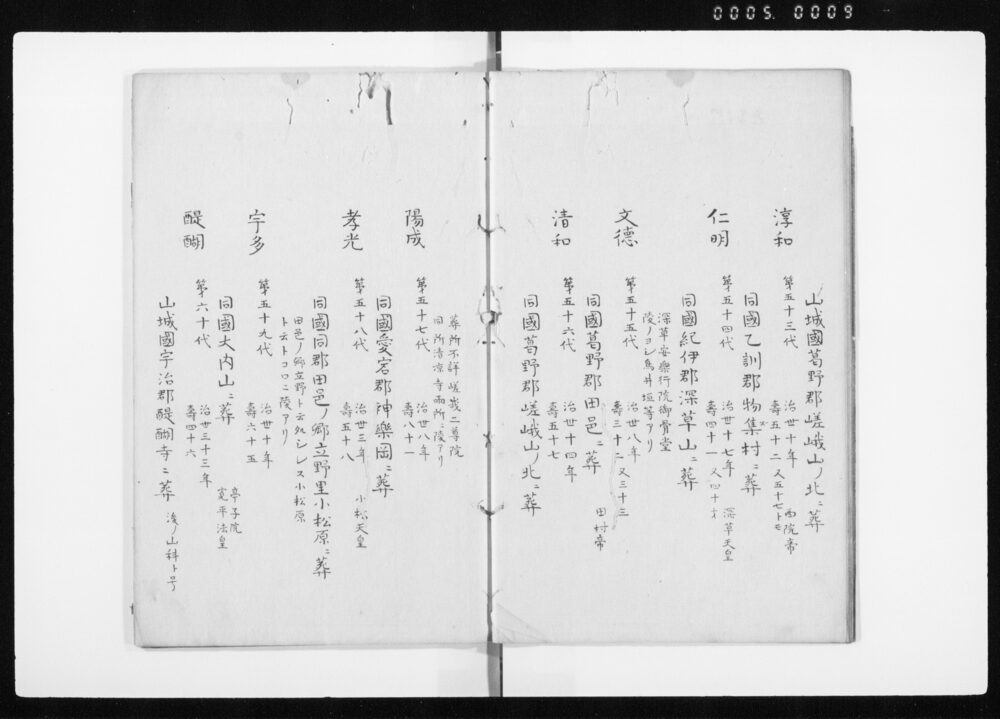 0005 0009
山城國葛野郡嵯峨山ノ北ニ葬
淳和
第五十三代 治世十年 西院帝
壽五十二又五十七トモ
同國乙訓郡物集村ニ葬
仁明
第五十四代 治世十七年 深草天皇
壽四十一又四十才
同國紀伊郡深草山ニ葬
深草安樂行院御骨堂
陵ノヨシ鳥井垣等アリ
文德
第五十五代 治世八年
壽三十二又三十三
田村帝
同國葛野郡田邑ニ葬
清和
第五十六代 治世十四年
壽五十七
同國葛野郡嵯峨山ノ北ニ葬
葬所不詳嵯峨二尊院
同所清凉寺両所ニ陵アリ
陽成
第五十七代 治世八年
壽八十一
同國愛宕郡神樂岡ニ葬
孝光
第五十八代 治世三年 小松天皇
壽五十八
同國同郡田邑ノ郷立野里小松原ニ葬
田邑ノ郷立野ト云処シレス小松原
ト云トコロニ陵アリ
宇多
第五十九代 治世十年
壽六十五
亭子院
寛平法皇
同國大内山ニ葬
醍醐
第六十代 治世三十三年
壽四十六
山城國宇治郡醍醐寺ニ葬 後ノ山科ト号